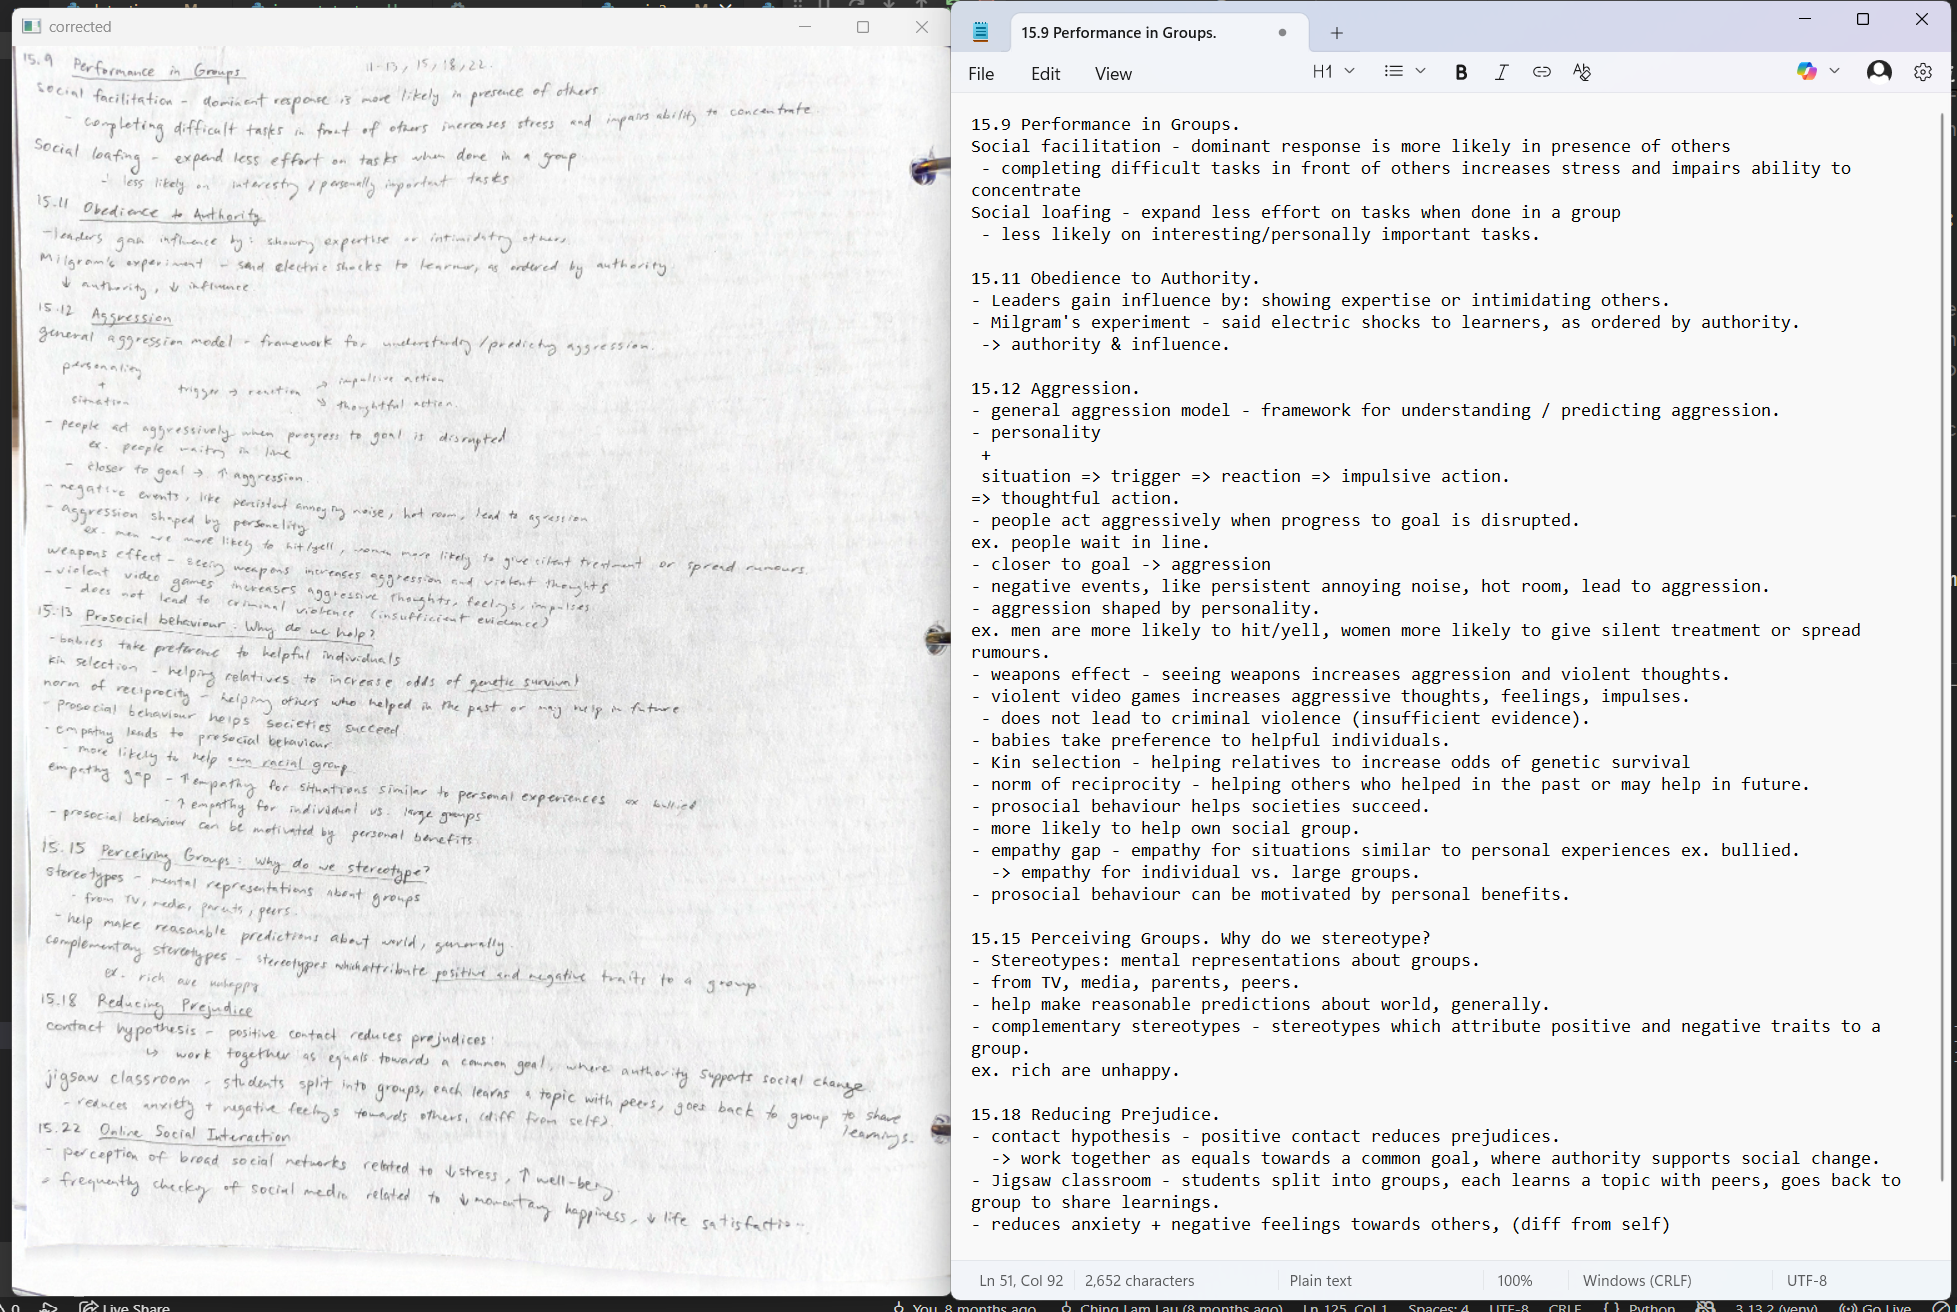 corrected
15.9 Performance in Groups 11-13, 15, 18, 22.
Social facilitation - dominant response is more likely in presence of others
- completing difficult tasks in front of others increases stress and impairs ability to concentrate.
Social loafing - expend less effort on tasks when done in a group
- less likely on interestng / personally important tasks
15.11 Obedience to Authority
- leaders gain influence by: showng expertise or intimidatng others.
Milgram's experiment - send electric shocks to learner, as ordered by authority.
↓ authority, ↓ influence
15.12 Aggression
general aggression model - framework for understandng / predictng aggression.
personality
+
situation
trigger → reaction
↗ impulsive action
↘ thoughtful action.
- people act aggressively when progress to goal is disrupted
ex. people waitng in line
- closer to goal → ↑ aggression.
- negative events, like persistent annoying noise, hot room, lead to agression
- aggression shaped by personality
ex. men are more likely to hit/yell, women more likely to give silent treatment or spread rumours.
weapons effect - seeing weapons increases aggression and violent thoughts
- violent video games increases aggressive thoughts, feelngs, impulses
- does not lead to criminal violence (insufficient evidence)
15.13 Prosocial behaviour: Why do we help?
- babies take preference to helpful individuals
kin selection - helping relatives to increase odds of genetic survival
norm of reciprocity - helping others who helped in the past or may help in future
- prosocial behaviour helps societies succeed
- empathy leads to prosocial behaviour
- more likely to help own racial group
empathy gap - ↑ empathy for situations similar to personal experiences ex bullied
- ↑ empathy for individual vs. large groups
- prosocial behaviour can be motivated by personal benefits
15.15 Perceiving Groups: why do we stereotype?
stereotypes - mental representations about groups
- from TV, media, parents, peers
- help make reasonable predictions about world, generally
complementary stereotypes - stereotypes which attribute positive and negative traits to a group
ex. rich are unhappy
15.18 Reducing Prejudice
contact hypothesis - positive contact reduces prejudices
↳ work together as equals towards a common goal, where authority supports social change
jigsaw classroom - students split into groups, each learns a topic with peers, goes back to group to share learnings.
- reduces anxiety + negative feelngs towards others, (diff from self)
15.22 Online Social Interaction
- perception of broad social networks related to ↓ stress, ↑ well-being.
- frequently checkng of social media related to ↓ momentary happiness, ↓ life satisfaction
15.9 Performance in Groups.
File Edit View
H1
15.9 Performance in Groups.
Social facilitation - dominant response is more likely in presence of others
- completing difficult tasks in front of others increases stress and impairs ability to
concentrate
Social loafing - expand less effort on tasks when done in a group
- less likely on interesting/personally important tasks.
15.11 Obedience to Authority.
- Leaders gain influence by: showing expertise or intimidating others.
- Milgram's experiment - said electric shocks to learners, as ordered by authority.
-> authority & influence.
15.12 Aggression.
- general aggression model - framework for understanding / predicting aggression.
- personality
+
situation => trigger => reaction => impulsive action.
=> thoughtful action.
- people act aggressively when progress to goal is disrupted.
ex. people wait in line.
- closer to goal -> aggression
- negative events, like persistent annoying noise, hot room, lead to aggression.
- aggression shaped by personality.
ex. men are more likely to hit/yell, women more likely to give silent treatment or spread
rumours.
- weapons effect - seeing weapons increases aggression and violent thoughts.
- violent video games increases aggressive thoughts, feelings, impulses.
- does not lead to criminal violence (insufficient evidence).
- babies take preference to helpful individuals.
- Kin selection - helping relatives to increase odds of genetic survival
- norm of reciprocity - helping others who helped in the past or may help in future.
- prosocial behaviour helps societies succeed.
- more likely to help own social group.
- empathy gap - empathy for situations similar to personal experiences ex. bullied.
-> empathy for individual vs. large groups.
- prosocial behaviour can be motivated by personal benefits.
15.15 Perceiving Groups. Why do we stereotype?
- Stereotypes: mental representations about groups.
- from TV, media, parents, peers.
- help make reasonable predictions about world, generally.
- complementary stereotypes - stereotypes which attribute positive and negative traits to a
group.
ex. rich are unhappy.
15.18 Reducing Prejudice.
- contact hypothesis - positive contact reduces prejudices.
-> work together as equals towards a common goal, where authority supports social change.
- Jigsaw classroom - students split into groups, each learns a topic with peers, goes back to
group to share learnings.
- reduces anxiety + negative feelings towards others, (diff from self)
Ln 51, Col 92 2,652 characters Plain text 100% Windows (CRLF) UTF-8
0 Live Share You, 8 months ago Ching Lam Lau (8 months ago) Ln 125, Col 1 Spaces: 4 UTF-8 CRLF { } Python 3.13.2 (venv) Go Live